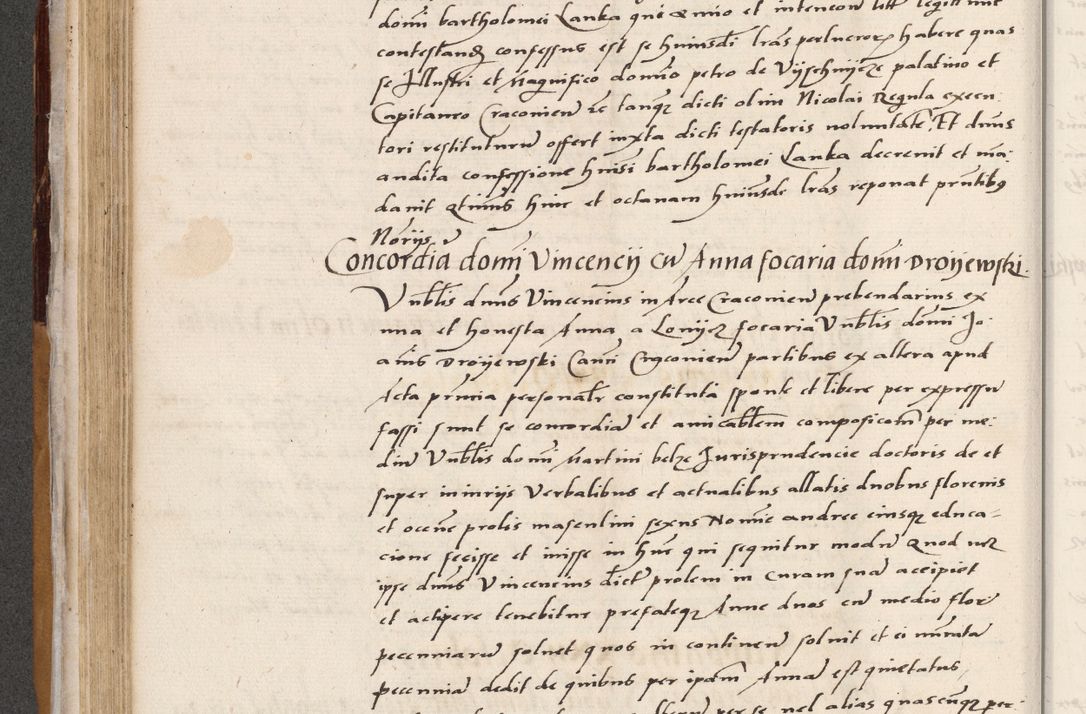 domini bartholomei Lanka
contestand confessus est se huiusdi lras perlucror habere quas
se Illustri et Magnifico domio petro de Vijschnijcze palatino et
Capitaneo Cracovien zc tanq dicti olim Nicolai Regula execu:
tori restituturu offert iuxta dicti testatoris voluntate Et dnus
audita confessione huisi bartholomei Lanka decrevit et ma:
davit qtenus hinc et octavam huiusde lras reponat pntibg
Norijs
Concordia domi Vincencij cu Anna focaria domi Droijewski.
Vnblis dnus Vincencius in Arce Cracovien prebendarius ex
vna et honesta Anna a Lonijcz focaria Vnblis domi Jo:
anis Droijewski Cani Cracovien partibus ex altera apud
Acta pncia personalr constituta sponte et libere per expressu
fassi sunt se concordia et amicablem composicom per me:
diu Vnblis domi Martini belze Jurisprudencie doctoris de et
super iniurijs Verbalibus et actualibus allatis duobus florenis
et occne prolis masculini sexus Nomie andree eiusq educa-
cione fecisse et inisse in huc qui sequitur modu Quod vcz
ipse dnus Vincencius dict prolem in Curam sua accipiet
et accipere tenebitur prefateq Anne duos cu medio flor
pecuniaru solvet quos in continen solvit et ei nurata
pecunia dedit de quibus per ipam Anna est quietatus
per se vel alias quascunq per: